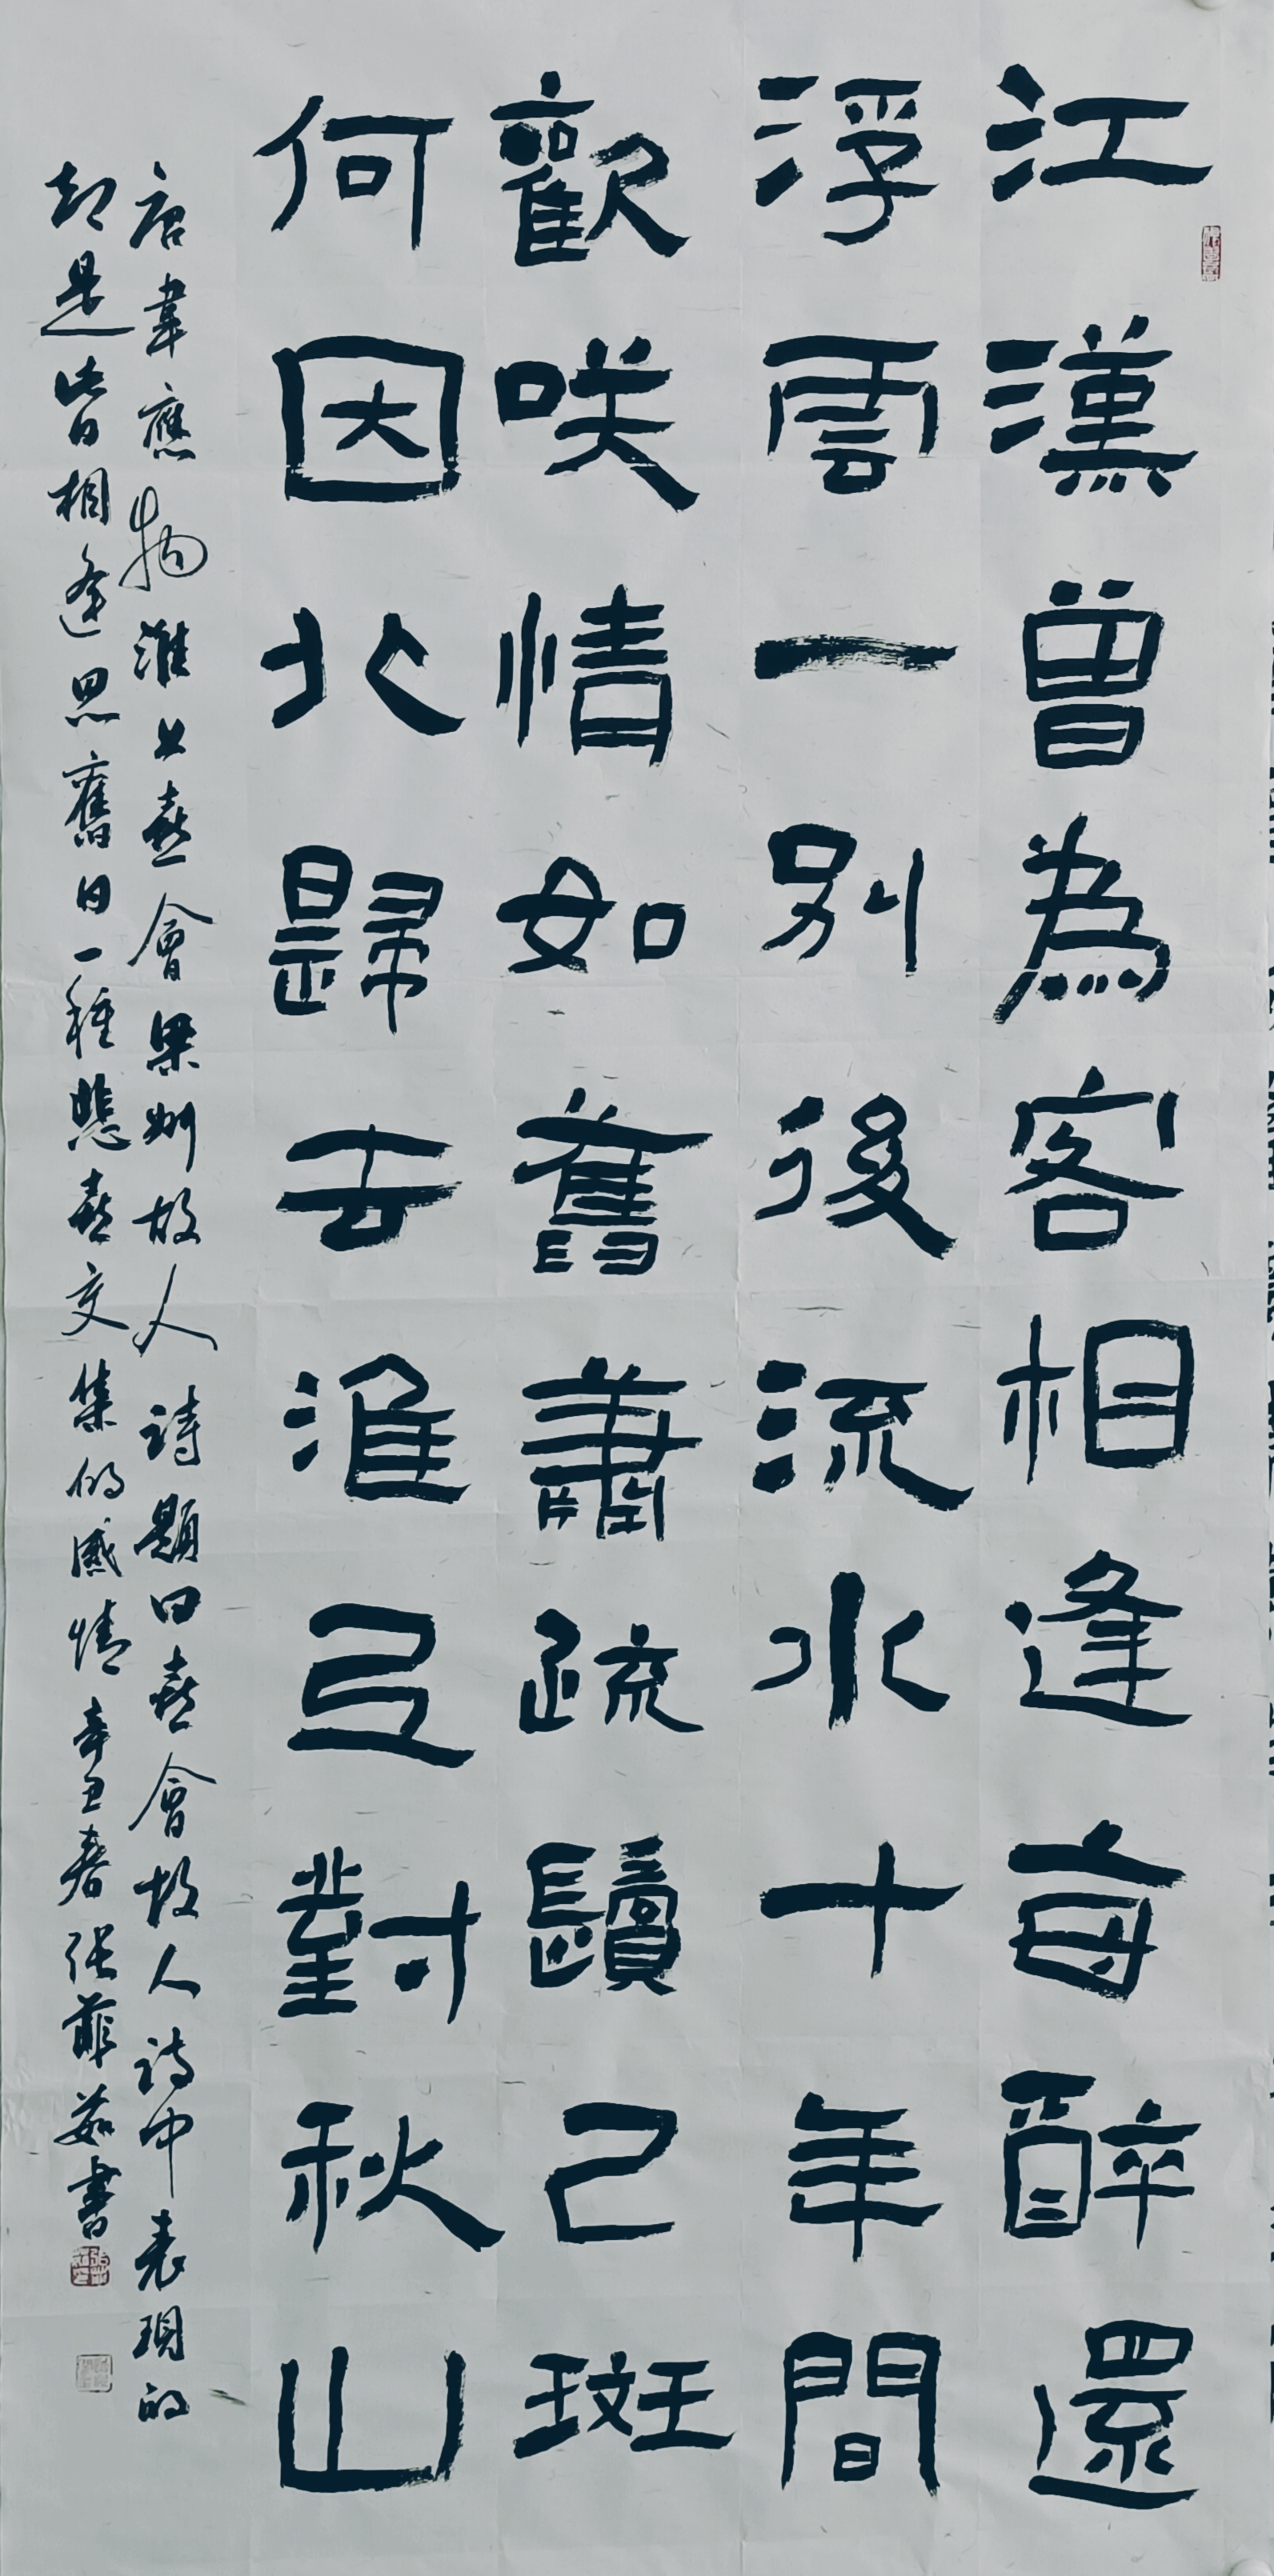 江漢曾為客相逢每醉還
浮雲一別後流水十年間
歡咲情如舊蕭疏鬢已斑
何因北歸去淮上對秋山
唐韋應物淮上喜會梁州故人詩題曰喜會故人詩中表現的
却是昔日相逢思舊日一種悲喜交集的感情辛丑春張菲茹書